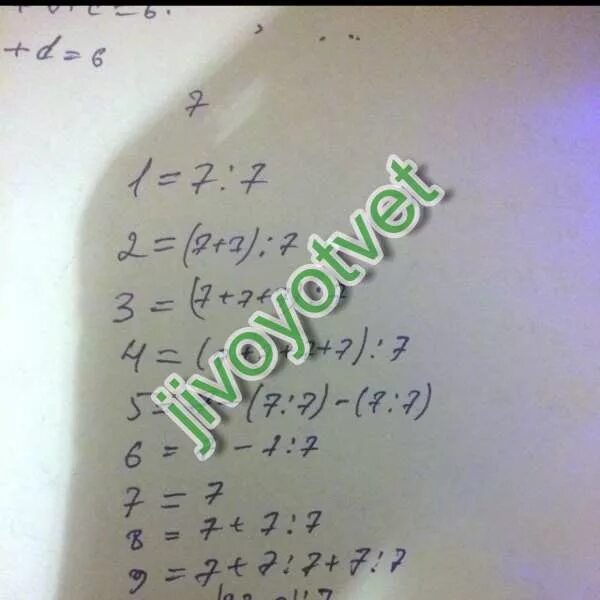 + d = 6
7
1 = 7 : 7
2 = (7+7) : 7
3 = (7+7+
4 = ( +7) : 7
5 = (7:7) - (7:7)
6 = - 7:7
7 = 7
8 = 7 + 7 : 7
9 = 7 + 7 : 7 + 7 : 7
jivoyotvet